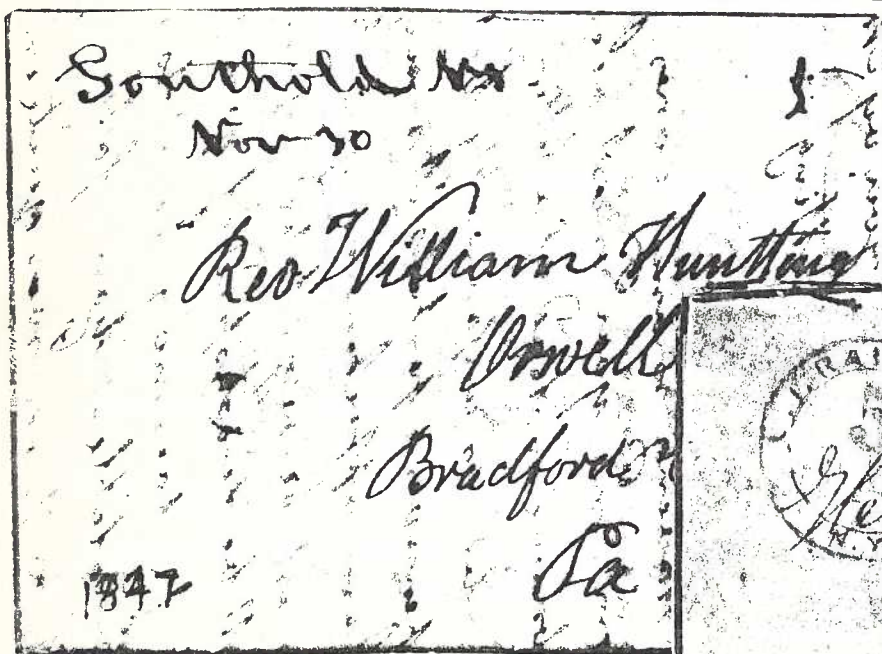 Southold NY
Nov 30
Rev William Huntting
Orwell
Bradford
Pa
1847
N.Y